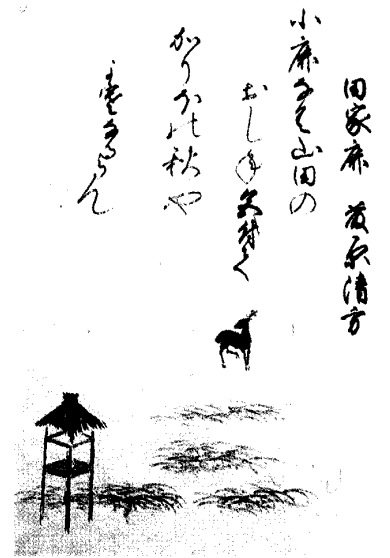 田家鹿 藤原清方
小鹿なく山田の
おしね色付て
かりほの秋や
なるらん